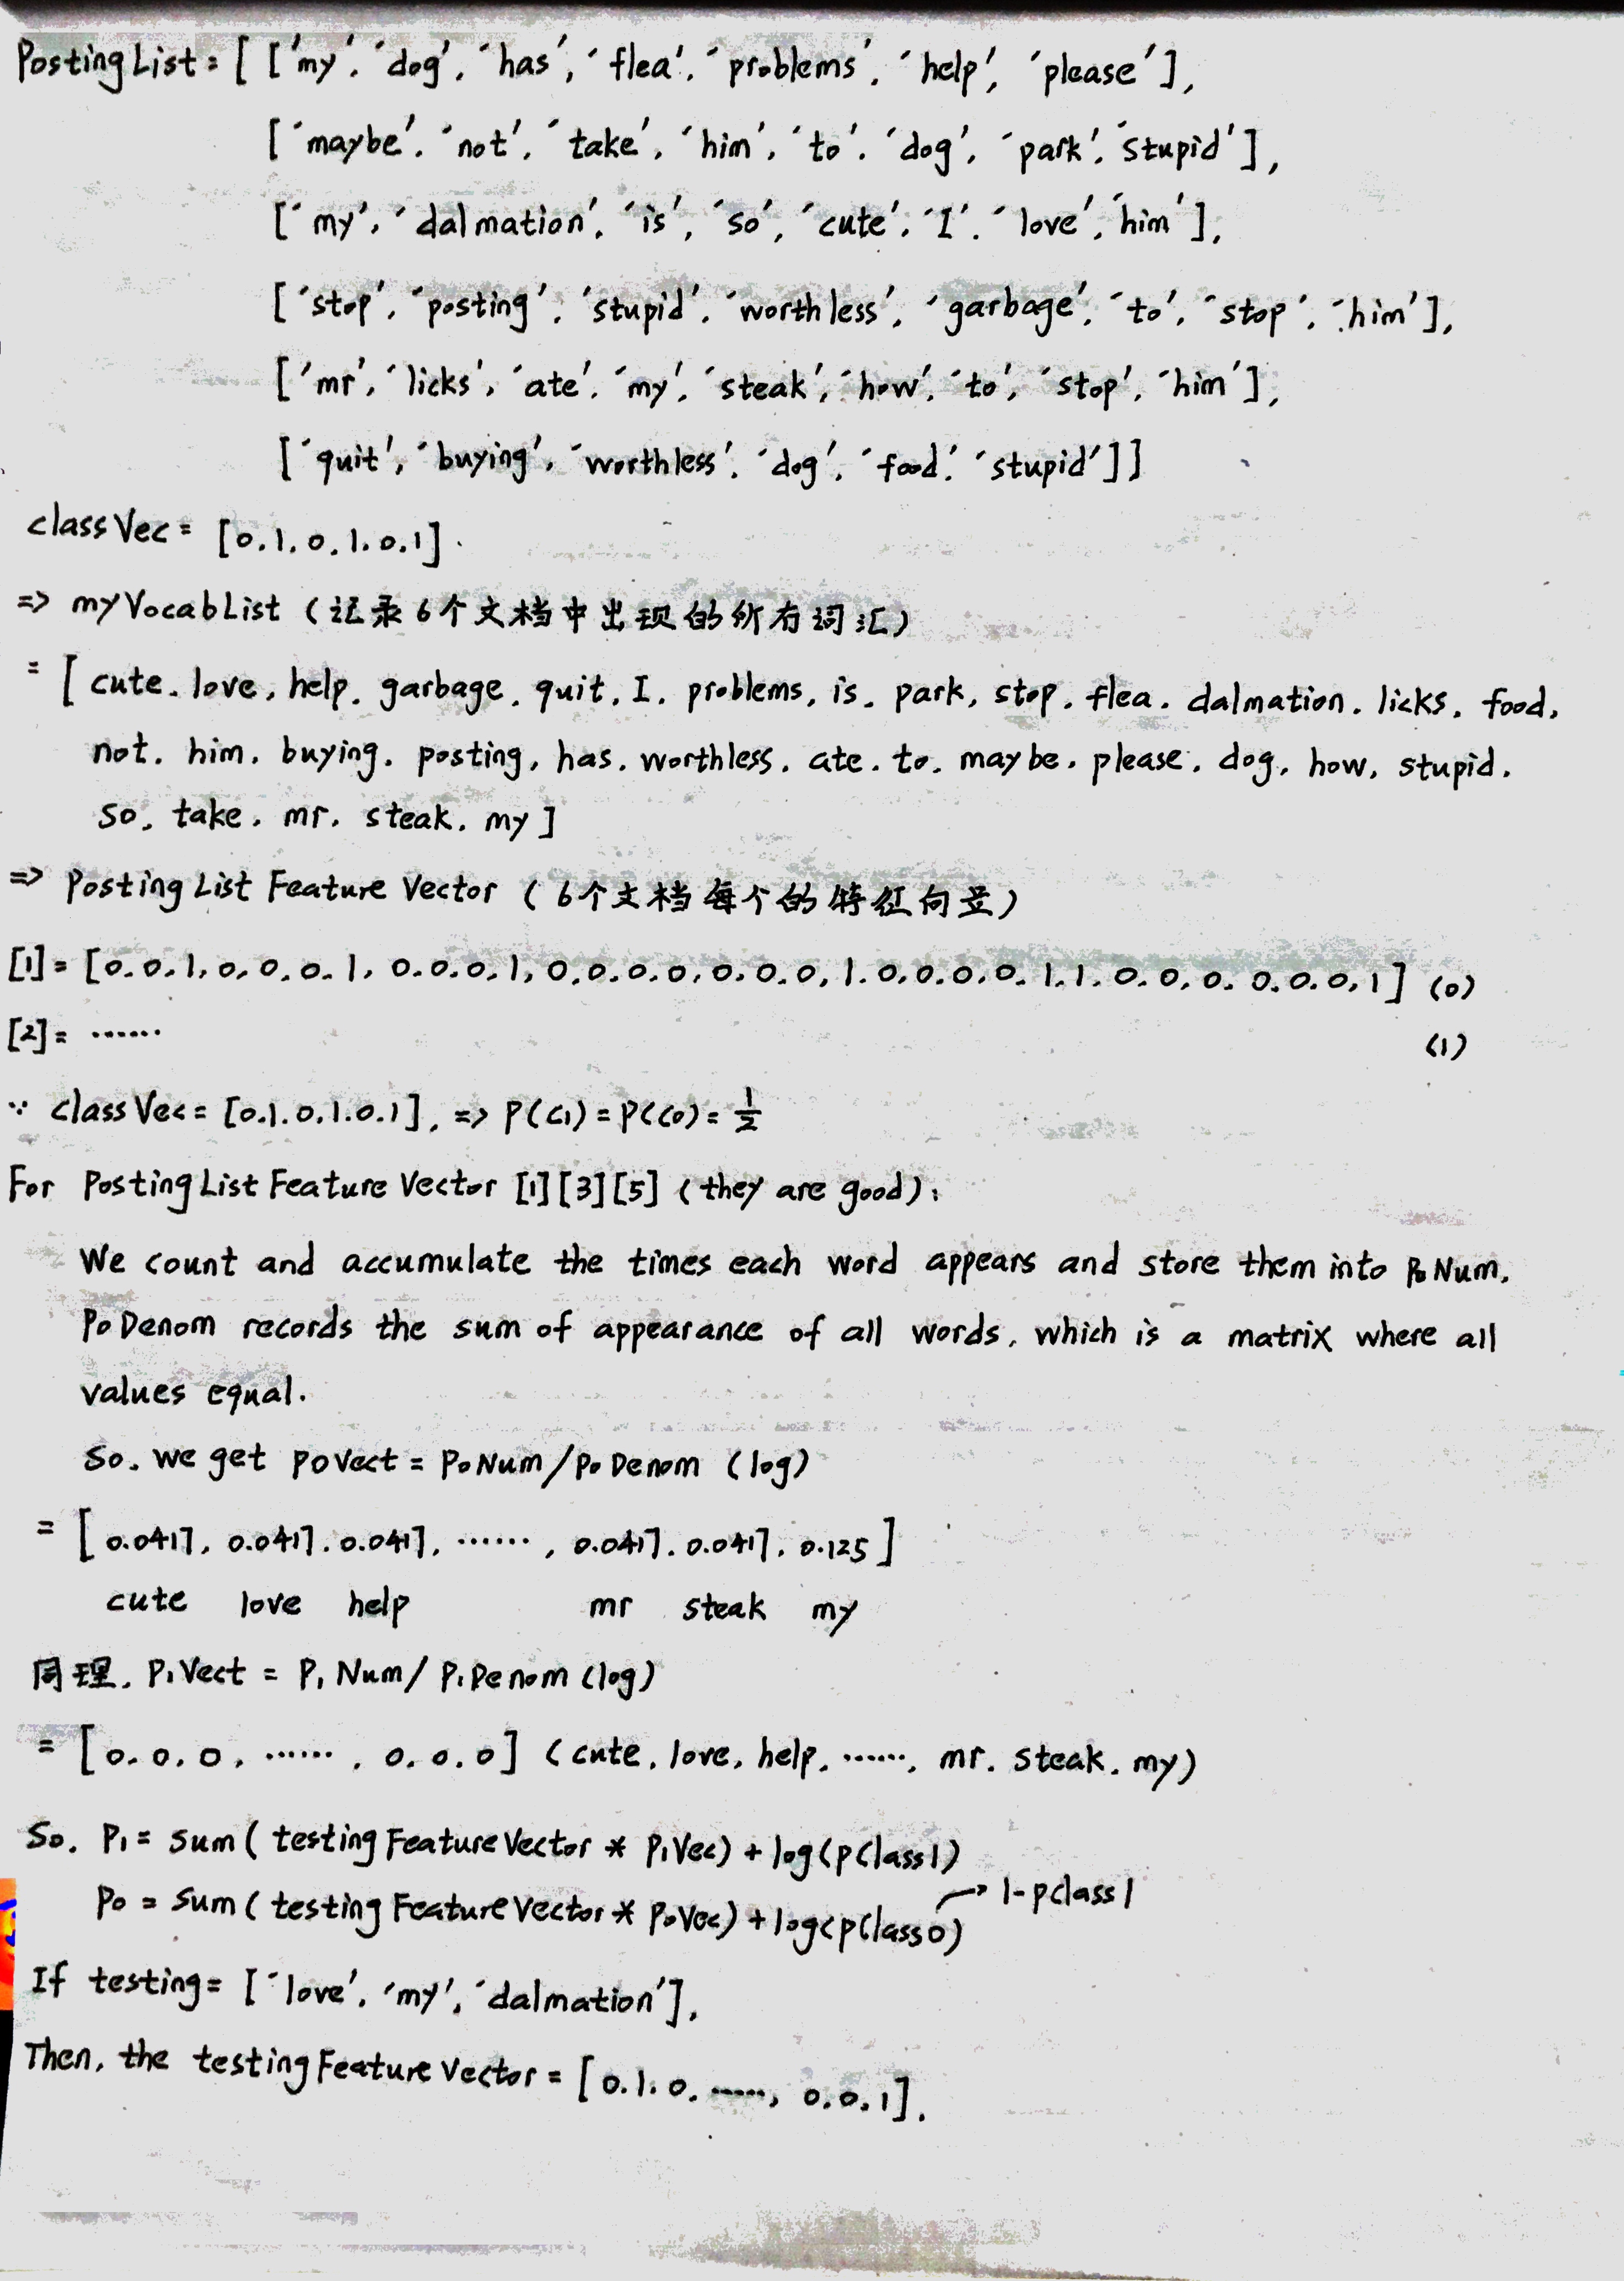 PostingList = [ ['my', 'dog', 'has', 'flea', 'problems', 'help', 'please'],
['maybe', 'not', 'take', 'him', 'to', 'dog', 'park', 'stupid'],
['my', 'dalmation', 'is', 'so', 'cute', 'I', 'love', 'him'],
['stop', 'posting', 'stupid', 'worthless', 'garbage', 'to', 'stop', 'him'],
['mr', 'licks', 'ate', 'my', 'steak', 'how', 'to', 'stop', 'him'],
['quit', 'buying', 'worthless', 'dog', 'food', 'stupid']]
classVec = [0.1.0.1.0.1].
=> myVocabList (记录6个文档中出现的所有词汇)
= [ cute. love, help. garbage. quit. I. problems, is. park, stop. flea. dalmation. licks. food,
not. him. buying. posting, has. worthless. ate. to. maybe. please. dog, how, stupid.
so. take. mr. steak. my ]
=> Posting List Feature Vector (6个文档每个的特征向量)
[1] = [0.0.1,0,0.0.0.1, 0.0.0.1,0.0.0.0,0.0.0,1.0.0.0.0.1.1.0.0,0.0.0.0,1] (0)
[2] = ...... (1)
∵ classVec = [0.1.0.1.0.1], => P(C1) = P(C0) = 1/2
For PostingList Feature Vector [1][3][5] (they are good):
We count and accumulate the times each word appears and store them into P0Num.
P0Denom records the sum of appearance of all words, which is a matrix where all
values equal.
So. we get p0Vect = P0Num/P0Denom (log)
= [ 0.0417, 0.0417. 0.0417, ......, 0.0417. 0.0417. 0.125 ]
cute love help mr steak my
同理. P1Vect = P1Num/P1Denom (log)
= [0.0.0, ......, 0.0.0] (cute, love, help, ......, mr. steak. my)
So. P1 = sum( testingFeatureVector * P1Vec) + log(pClass1)
P0 = sum( testingFeatureVector * P0Vec) + log(pClass0) → 1-pclass1
If testing = ['love', 'my', 'dalmation'],
Then, the testingFeatureVector = [0.1.0. ......, 0.0.1].